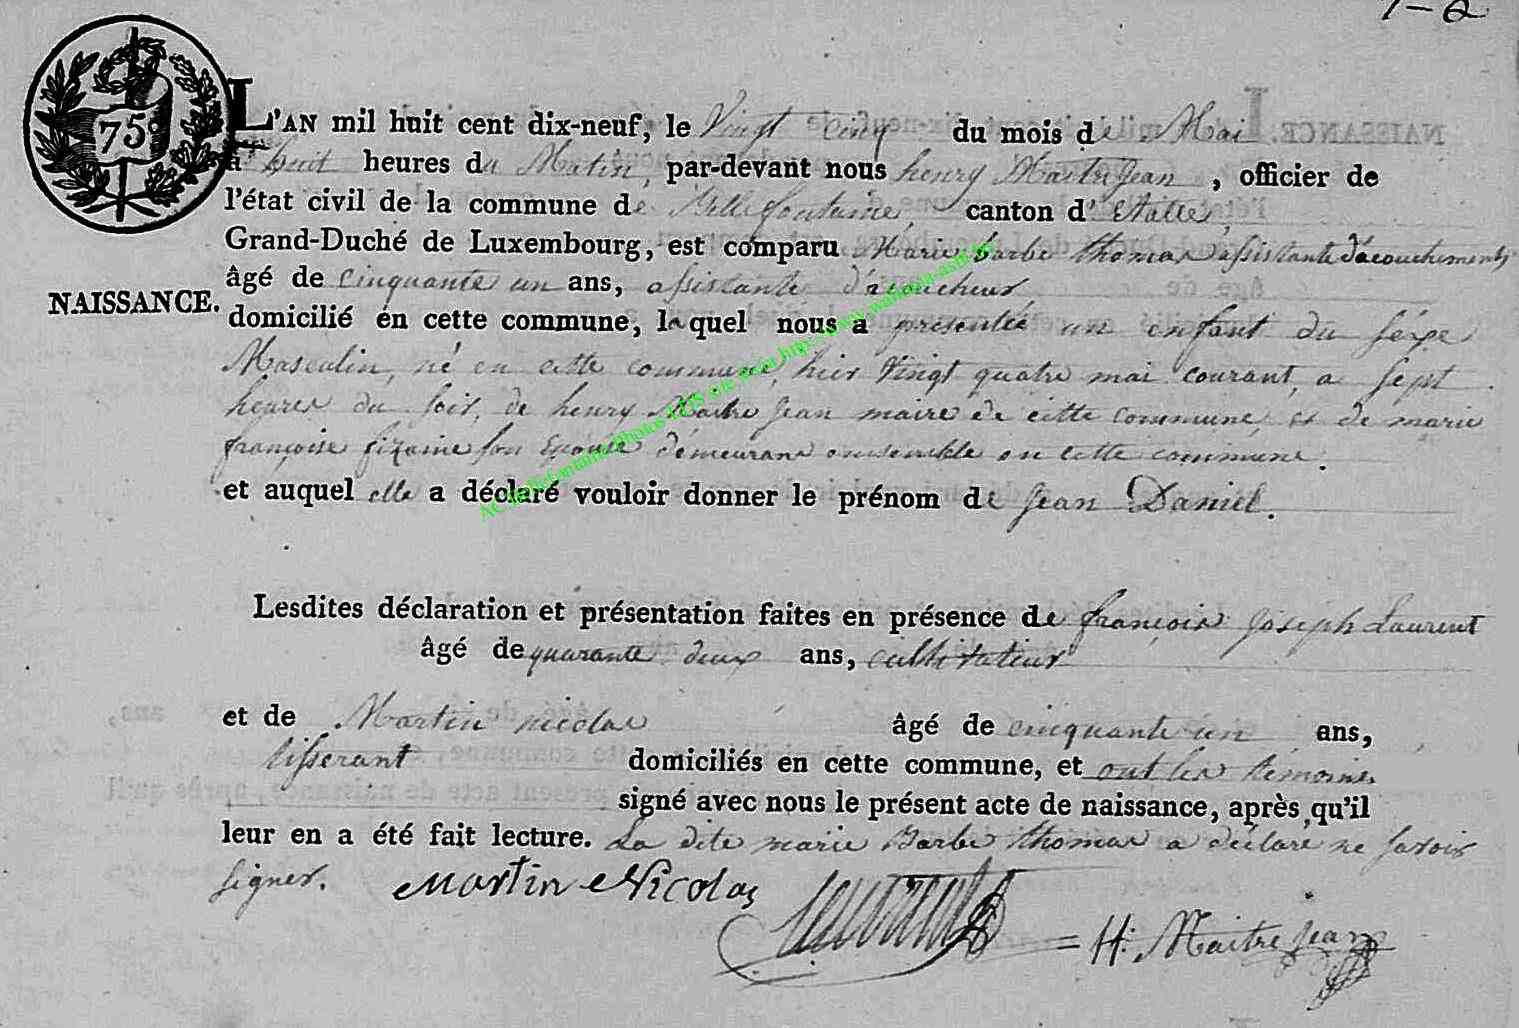 7-2
75c
L'AN mil huit cent dix-neuf, le Vingt cinq du mois de Mai
à huit heures du Matin, par-devant nous henry Maitrejean, officier de
l'état civil de la commune de Bellefontaine, canton d'Etalle,
Grand-Duché de Luxembourg, est comparu Marie barbe thomas assistante d'acouchements
âgé de cinquante un ans, assistante d'acoucheur,
NAISSANCE.
domicilié en cette commune, laquel nous a présentée un enfant du séxe
Masculin, né en cette commune, hier Vingt quatre mai courant, a sept
heures du soir, de henry Maitre jean maire de cette commune, et de marie
françoise fizaine son Epouse démeurans ensemble en cette commune.
et auquel elle a déclaré vouloir donner le prénom de jean Daniel.
Lesdites déclaration et présentation faites en présence de françois joseph Laurent
âgé de quarante deux ans, cultivateur
et de Martin nicolas âgé de cinquante un ans,
tisserant domiciliés en cette commune, et ont les témoins
signé avec nous le présent acte de naissance, après qu'il
leur en a été fait lecture. La dite marie Barbe thomas a déclaré ne savoir
signer. Martin Nicolas
Laurent
= H: Maitrejean